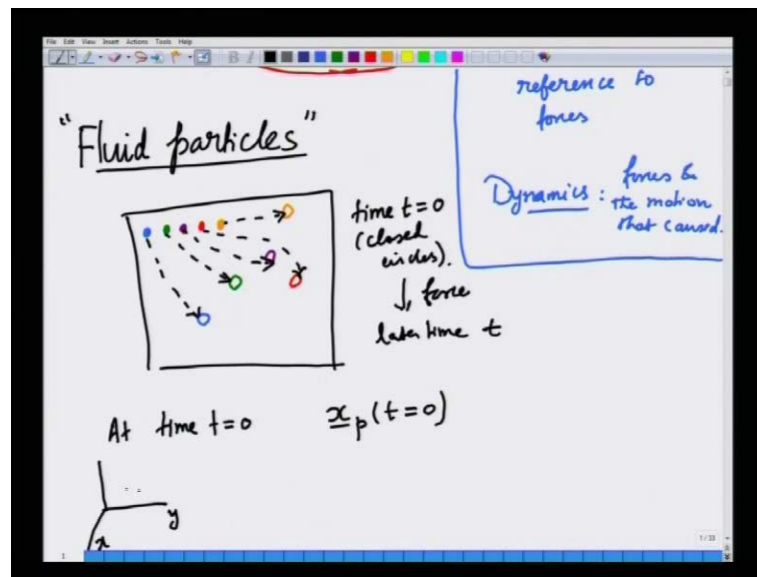 File Edit View Insert Actions Tools Help
reference to
forces
"Fluid particles"
Dynamics : forces &
the motion
that caused.
time t=0
(closed
circles).
↓, force
later time t
At time t=0 x_p(t=0)
y
x
1/33
1